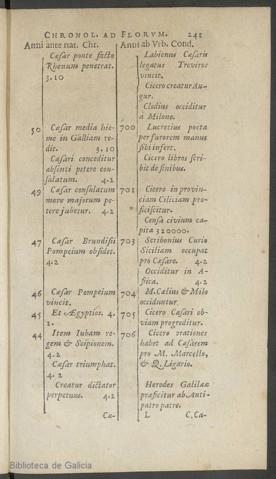 CHRONOL. AD FLORVM. 245
Anni ante nat. Chr. Anni ab Vrb. Cond.
Cæsar ponte facto
Rhenum penetrat.
3. 10
50 Cæsar media hie-
me in Galliam re-
dit. 3. 10
Cæsari conceditur
absenti petere con-
sulatum. 4. 2
49 Cæsar consulatum
more majorum pe-
tere jubetur. 4. 2
47 Cæsar Brundisii
Pompeium obsidet.
4. 2
46 Cæsar Pompeium
vincit.
45 Et Ægyptios. 4.
2.
44 Item Iubam re-
gem & Scipionem.
4. 2
Cæsar triumphat.
4. 2
Creatur dictator
perpetuus. 4. 2
Ca-
Labienus Cæsaris
legatus Treviros
vincit.
Cicero creatur Au-
gur.
Clodius occiditur
à Milone.
700 Lucretius poeta
per furorem manus
sibi infert.
Cicero libros scri-
bit de finibus.
701 Cicero in provin-
ciam Ciliciam pro-
ficiscitur.
Censa civium ca-
pita 320000.
703 Scribonius Curio
Siciliam occupat
pro Cæsare. 4. 2
Occiditur in A-
frica. 4. 2
704 M. Cælius & Milo
occiduntur.
705 Cicero Cæsari ob-
viam progreditur.
706 Cicero orationes
habet ad Cæsarem
pro M. Marcello,
& Q. Ligario.
Herodes Galilææ
præficitur ab Anti-
patro patre.
L C, Ca-
Biblioteca de Galicia